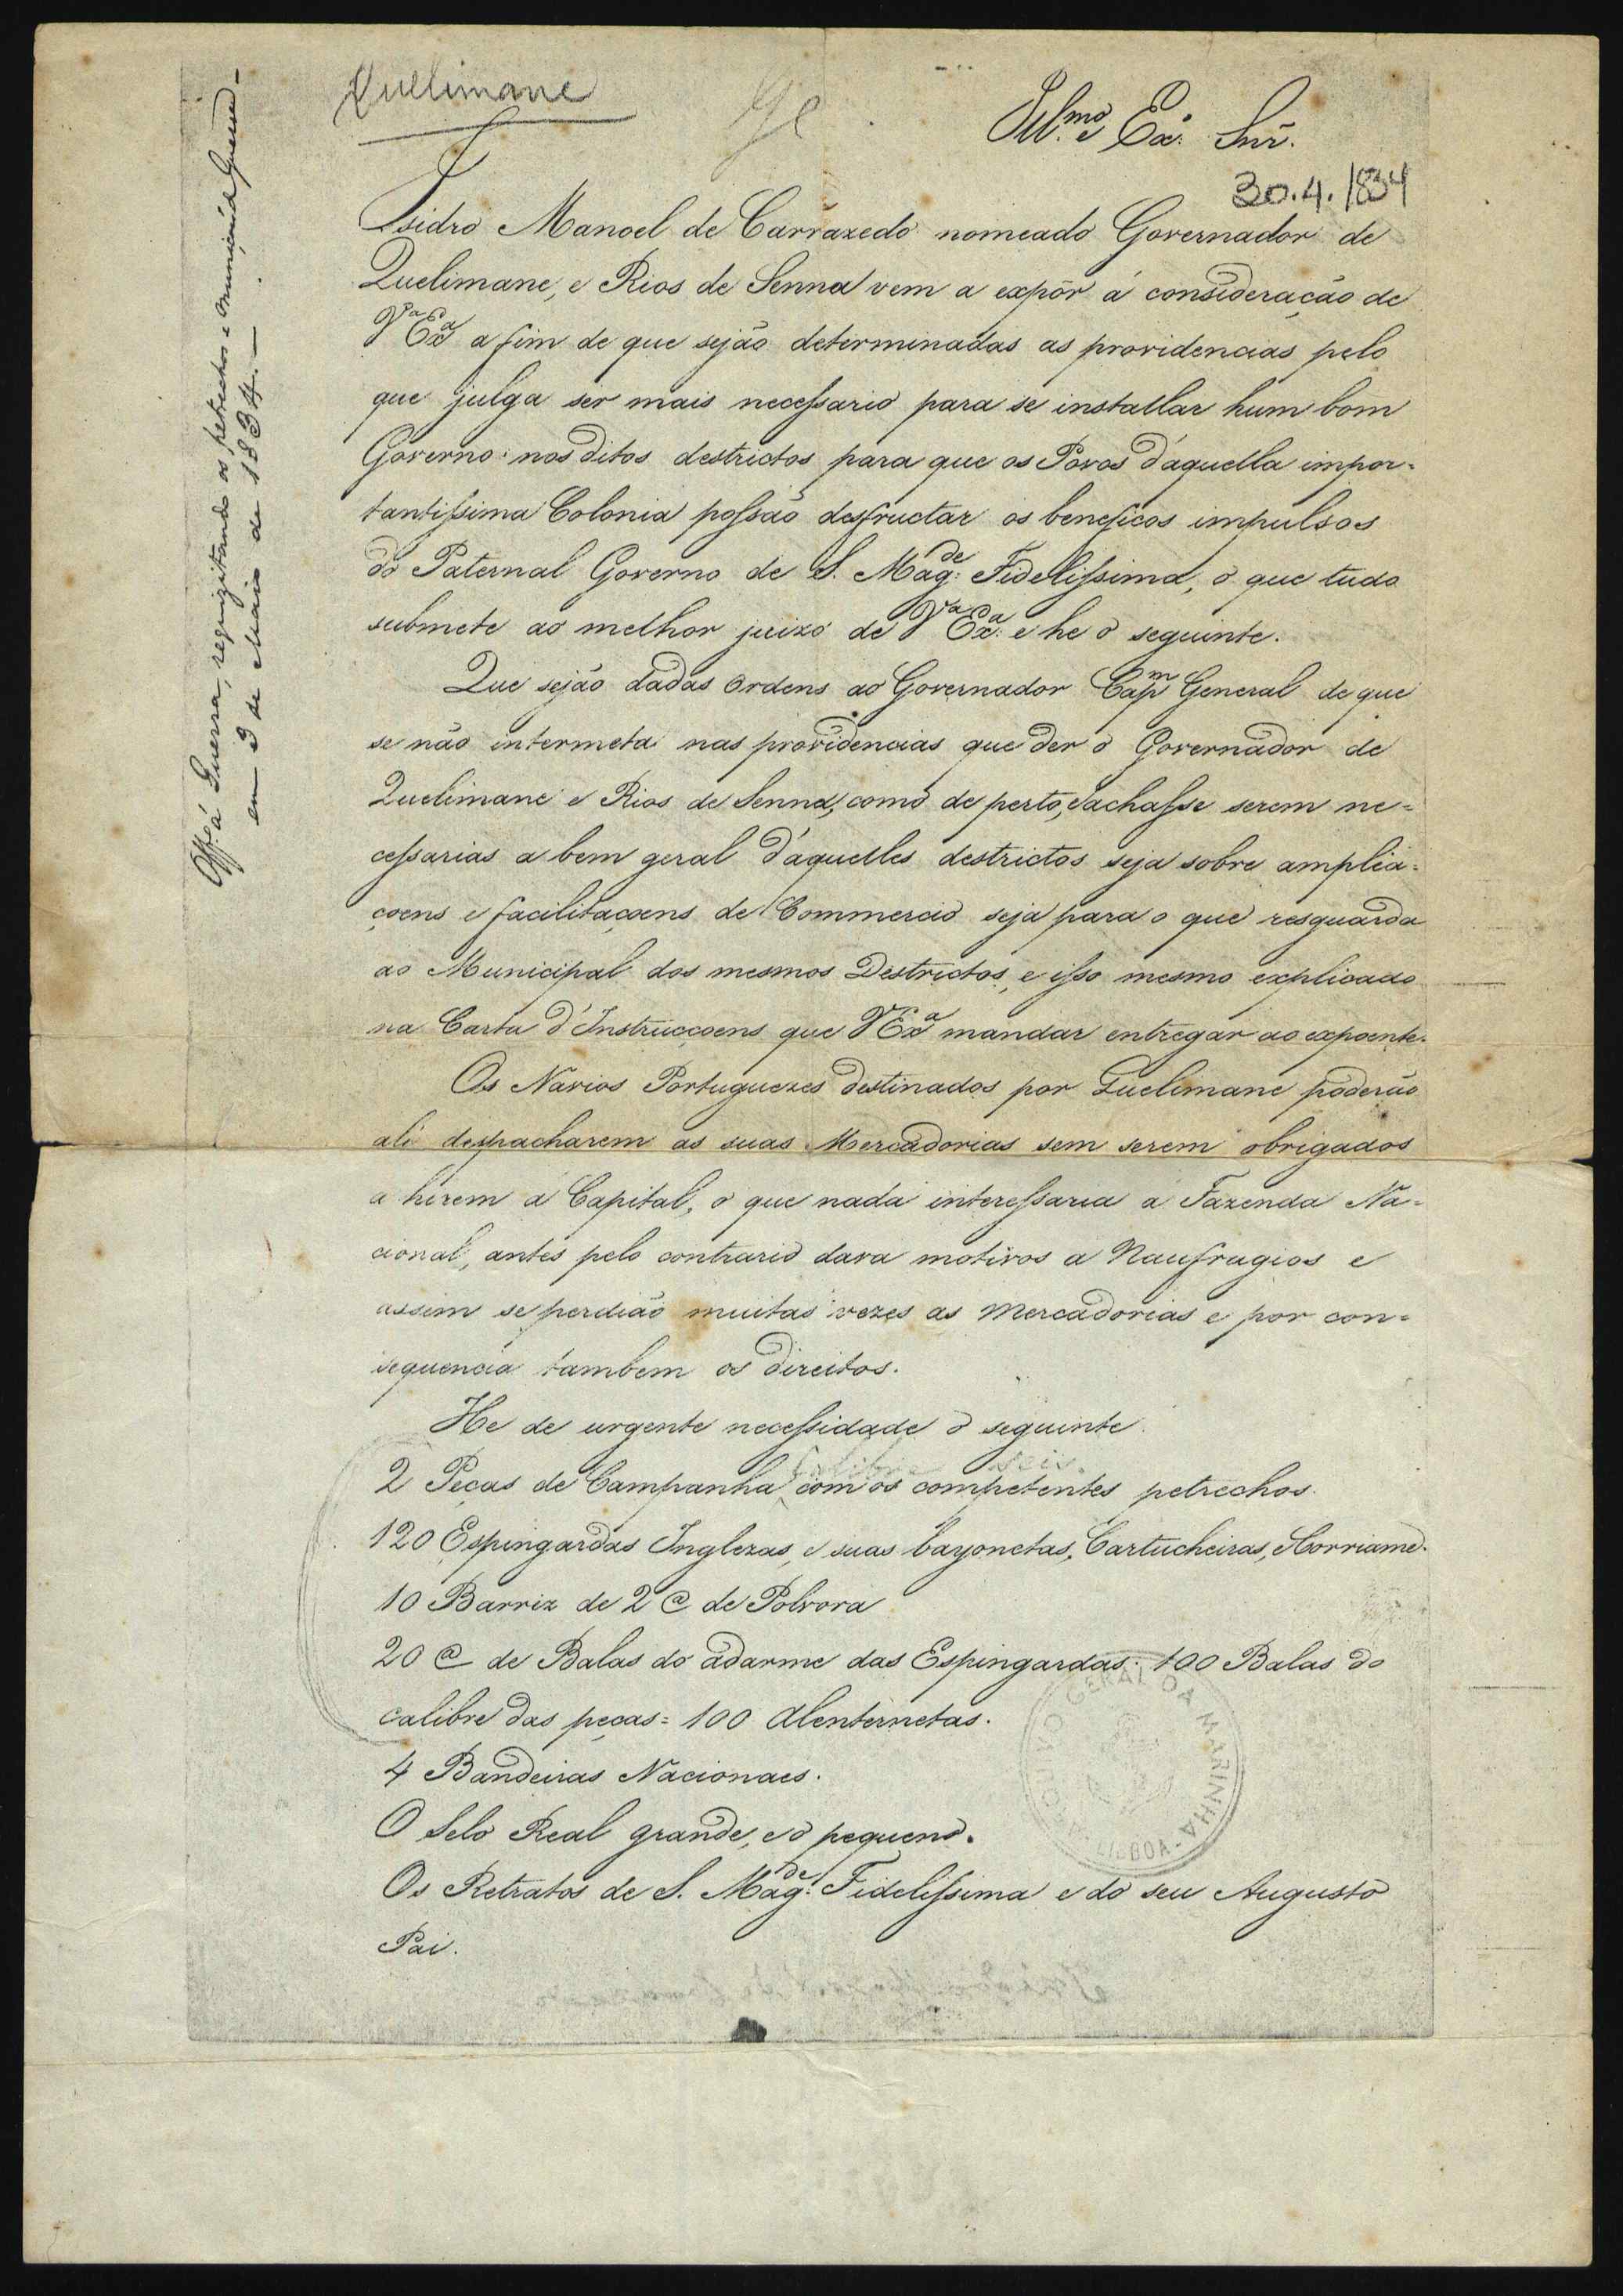 Quelimane
Ill.mo e Ex.o Snr.
30.4.1834
Isidro Manoel de Carrazedo nomeado Governador de
Quelimane, e Rios de Senna vem a expôr á consideração de
V.a Ex.a a fim de que sejão determinadas as providencias pelo
que julga ser mais necessario para se installar hum bom
Governo nos ditos destrictos para que os Povos d'aquella impor=
tantissima Colonia possão desfructar os beneficos impulsos
do Paternal Governo de S. Mag.de Fidelissima, o que tudo
submete ao melhor juizo de V.a Ex.a e he o seguinte.
Que sejão dadas Ordens ao Governador Cap.m General de que
se não intermeta nas providencias que der o Governador de
Quelimane e Rios de Senna, como de perto, e achasse serem ne=
cessarias a bem geral d'aquelles destrictos seja sobre amplia=
çoens e facilitaçoens de Commercio seja para o que resguarda
ao Municipal dos mesmos Destrictos, e isso mesmo explicado
na Carta d'Instrucçoens que V Ex.a mandar entregar ao expoente.
Os Navios Portuguezes destinados por Quelimane poderão
ali despacharem as suas Mercadorias sem serem obrigados
a hirem a Capital, o que nada interessaria a Fazenda Na=
cional, antes pelo contrario dava motivos a Naufragios e
assim se perdião muitas vezes as Mercadorias e por con=
sequencia tambem os direitos.
He de urgente necessidade o seguinte
Calibre seis
2 Peças de Campanha com os competentes petrechos.
120 Espingardas Inglezas, e suas bayonetas, Cartucheiras, Corriame.
10 Barriz de 2 @ de Polvora
20 @ de Balas do adarme das Espingardas. 100 Balas do
calibre das peças = 100 alenternetas.
4 Bandeiras Nacionaes.
O Selo Real grande, e o pequeno.
Os Retratos de S. Mag.de Fidelissima e do seu Augusto
Pai.
Off.o á Guerra, requizitando os petrechos e muniçoens de Guerra –
em 3 de Maio de 1834. –
ARQUIVO GERAL DA MARINHA - LISBOA -